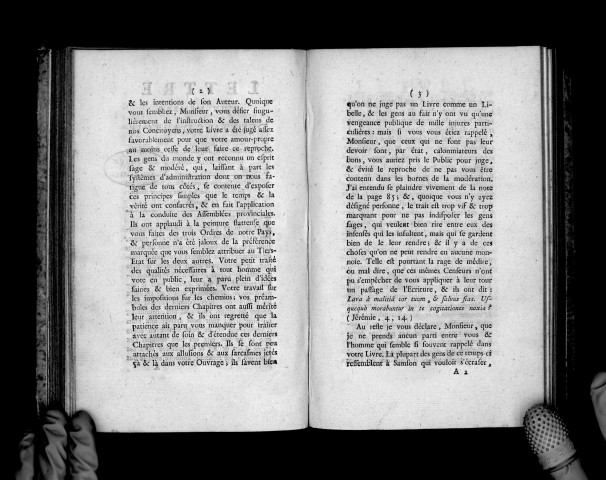 ( 2 )
& les intentions de son Auteur. Quoique
vous sembliez, Monsieur, vous défier singu-
liérement de l'instruction & des talens de
nos Concitoyens, votre Livre a été jugé assez
favorablement pour que votre amour-propre
au moins cesse de leur faire ce reproche.
Les gens du monde y ont reconnu un esprit
sage & modéré, qui, laissant à part les
systêmes d'administration dont on nous fa-
tigue de tous côtés, se contente d'exposer
ces principes simples que le temps & la
vérité ont consacrés, & en fait l'application
à la conduite des Assemblées provinciales.
Ils ont applaudi à la peinture flatteuse que
vous faites des trois Ordres de notre Pays,
& personne n'a été jaloux de la préférence
marquée que vous semblez attribuer au Tiers-
Etat sur les deux autres. Votre petit traité
des qualités nécessaires à tout homme qui
vote en public, leur a paru plein d'idées
saines & bien exprimées. Votre travail sur
les impositions sur les chemins; vos préam-
bules des derniers Chapitres ont aussi mérité
leur attention, & ils ont regretté que la
patience ait paru vous manquer pour traiter
avec autant de soin & d'étendue ces derniers
Chapitres que les premiers. Ils se sont peu
attachés aux allusions & aux sarcasmes jetés
çà & là dans votre Ouvrage; ils savent bien
( 3 )
qu'on ne juge pas un Livre comme un Li-
belle, & les gens au fait n'y ont vu qu'une
vengeance publique de mille injures parti-
culiéres: mais si vous vous étiez rappelé,
Monsieur, que ceux qui ne font pas leur
devoir sont, par état, calomniateurs des
bons, vous auriez pris le Public pour juge,
& évité le reproche de ne pas vous être
contenu dans les bornes de la modération.
J'ai entendu se plaindre vivement de la note
de la page 85; &, quoique vous n'y ayez
désigné personne, le trait est trop vif & trop
marquant pour ne pas indisposer les gens
sages, qui veulent bien rire entre eux des
insensés qui les insultent, mais qui se gardent
bien de le leur rendre; & il y a de ces
choses qu'on ne peut rendre en aucune mon-
noie. Telle est pourtant la rage de médire,
ou mal dire, que ces mêmes Censeurs n'ont
pu s'empêcher de vous appliquer à leur tour
un passage de l'Ecriture, & ils ont dit:
Lava à malitiâ cor tuum, & salvus fias. Us-
quequò morabuntur in te cogitationes noxiæ?
( Jérémie, 4, 14. )
Au reste je vous déclare, Monsieur, que
je ne prends aucun parti entre vous &
l'homme qui semble si souvent rappelé dans
votre Livre. La plupart des gens de ce temps ci
ressemblent à Samson qui vouloit s'écraser,
A 2